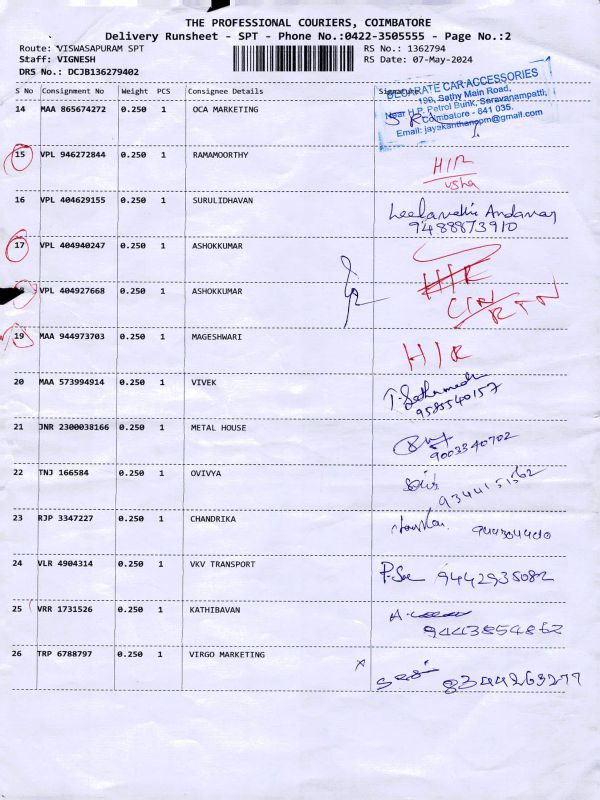 THE PROFESSIONAL COURIERS, COIMBATORE
Delivery Runsheet - SPT - Phone No.:0422-3505555 - Page No.:2
Route: VISWASAPURAM SPT RS No.: 1362794
Staff: VIGNESH RS Date: 07-May-2024
DRS No.: DCJB136279402
S No Consignment No Weight PCS Consignee Details Signature
DECARATE CAR ACCESSORIES
19B, Sathy Main Road,
Near H.P. Petrol Bunk, Saravanampatti,
Coimbatore - 641 035.
Email: jayakanthanopm@gmail.com
14 MAA 865674272 0.250 1 OCA MARKETING
15 VPL 946272844 0.250 1 RAMAMOORTHY H/R
usha
16 VPL 404629155 0.250 1 SURULIDHAVAN Leelavathi Andavar
9488873910
17 VPL 404940247 0.250 1 ASHOKKUMAR H/R
VPL 404927668 0.250 1 ASHOKKUMAR C/N RTN
19 MAA 944973703 0.250 1 MAGESHWARI H/R
20 MAA 573994914 0.250 1 VIVEK
9585540157
21 JNR 2300038166 0.250 1 METAL HOUSE
9003340702
22 TNJ 166584 0.250 1 OVIVYA
9344151562
23 RJP 3347227 0.250 1 CHANDRIKA
24 VLR 4904314 0.250 1 VKV TRANSPORT 9442935082
25 VRR 1731526 0.250 1 KATHIBAVAN
9443854862
26 TRP 6788797 0.250 1 VIRGO MARKETING
8344263277